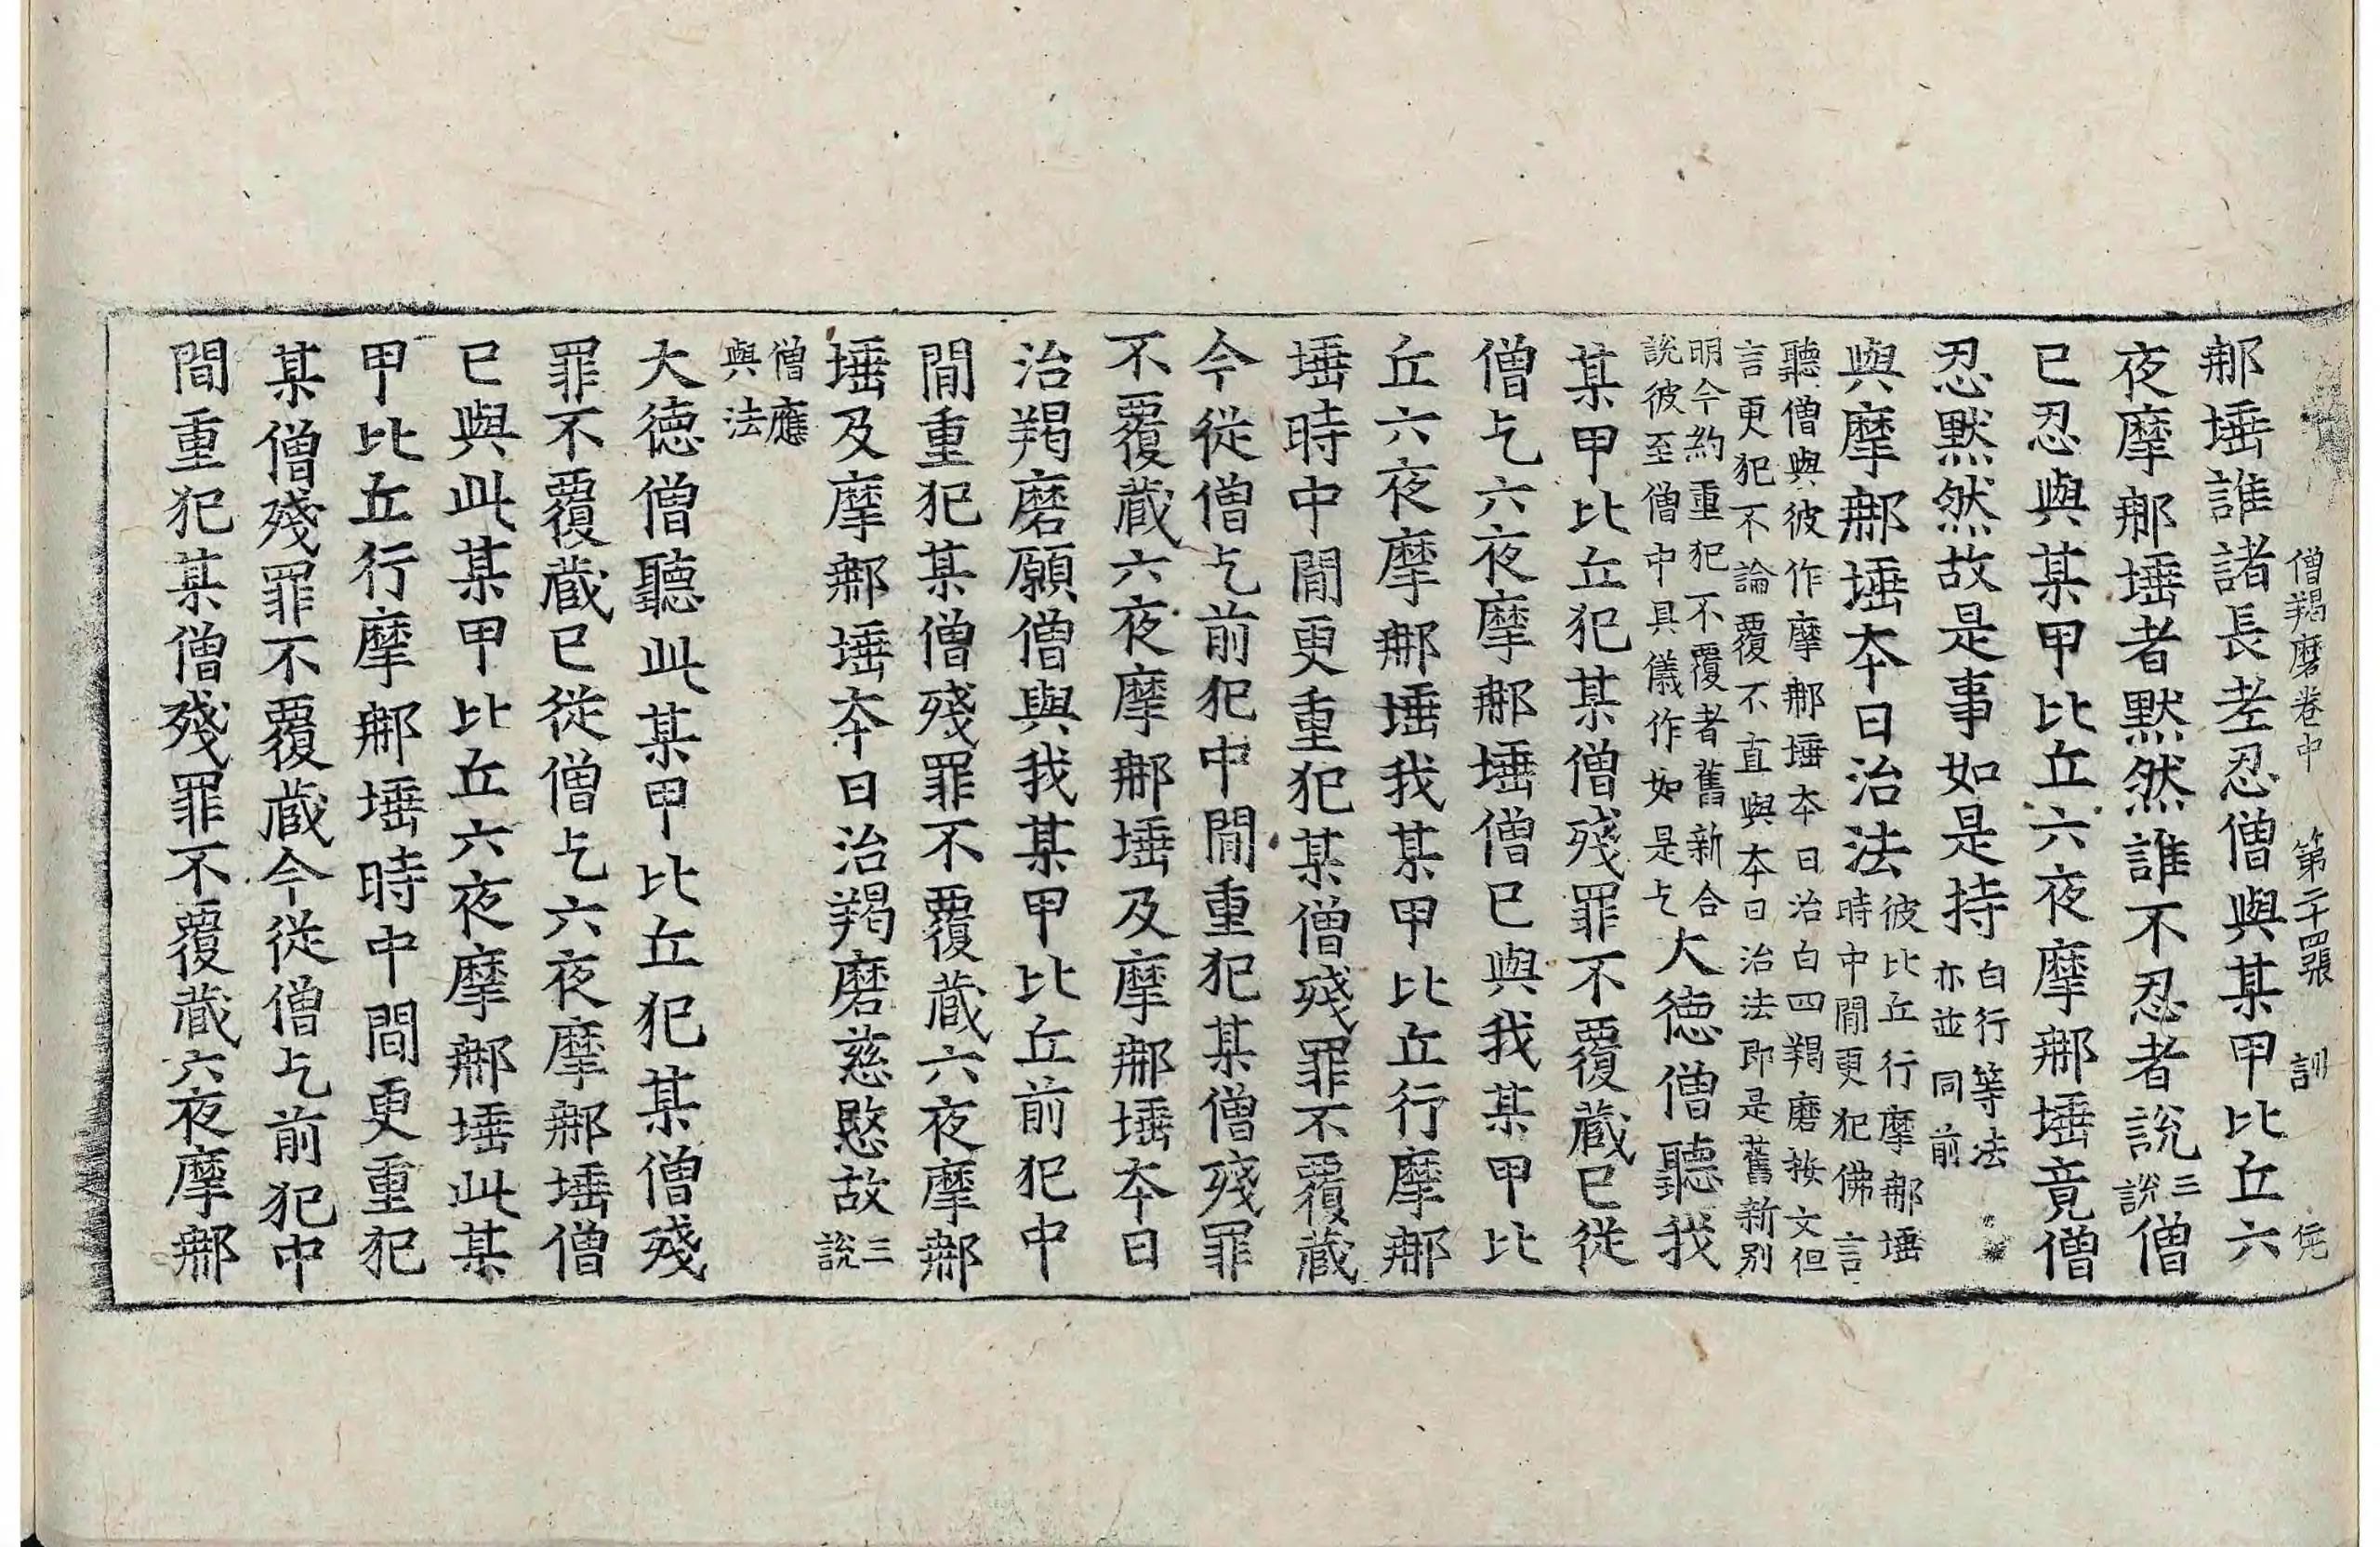 僧羯磨卷中 第二十四張 訓
𨚗埵誰諸長老忍僧與某甲比丘六
夜摩𨚗埵者默然誰不忍者說三說僧
已忍與某甲比丘六夜摩𨚗埵竟僧
忍默然故是事如是持白行等法亦並同前
與摩𨚗埵本日治法彼比丘行摩𨚗埵時中間更犯佛言
聽僧與彼作摩𨚗埵本日治白四羯磨按文但
言更犯不論覆不直與本日治法即是舊新別
明今約重犯不覆者舊新合
說彼至僧中具儀作如是乞大德僧聽我
某甲比丘犯某僧殘罪不覆藏已從
僧乞六夜摩𨚗埵僧已與我某甲比
丘六夜摩𨚗埵我某甲比丘行摩𨚗
埵時中間更重犯某僧殘罪不覆藏
今從僧乞前犯中間重犯某僧殘罪
不覆藏六夜摩𨚗埵及摩𨚗埵本日
治羯磨願僧與我某甲比丘前犯中
間重犯某僧殘罪不覆藏六夜摩𨚗
埵及摩𨚗埵本日治羯磨慈愍故三說
僧應與法
大德僧聽此某甲比丘犯某僧殘
罪不覆藏已從僧乞六夜摩𨚗埵僧
已與此某甲比丘六夜摩𨚗埵此某
甲比丘行摩𨚗埵時中間更重犯
某僧殘罪不覆藏今從僧乞前犯中
間重犯某僧殘罪不覆藏六夜摩𨚗